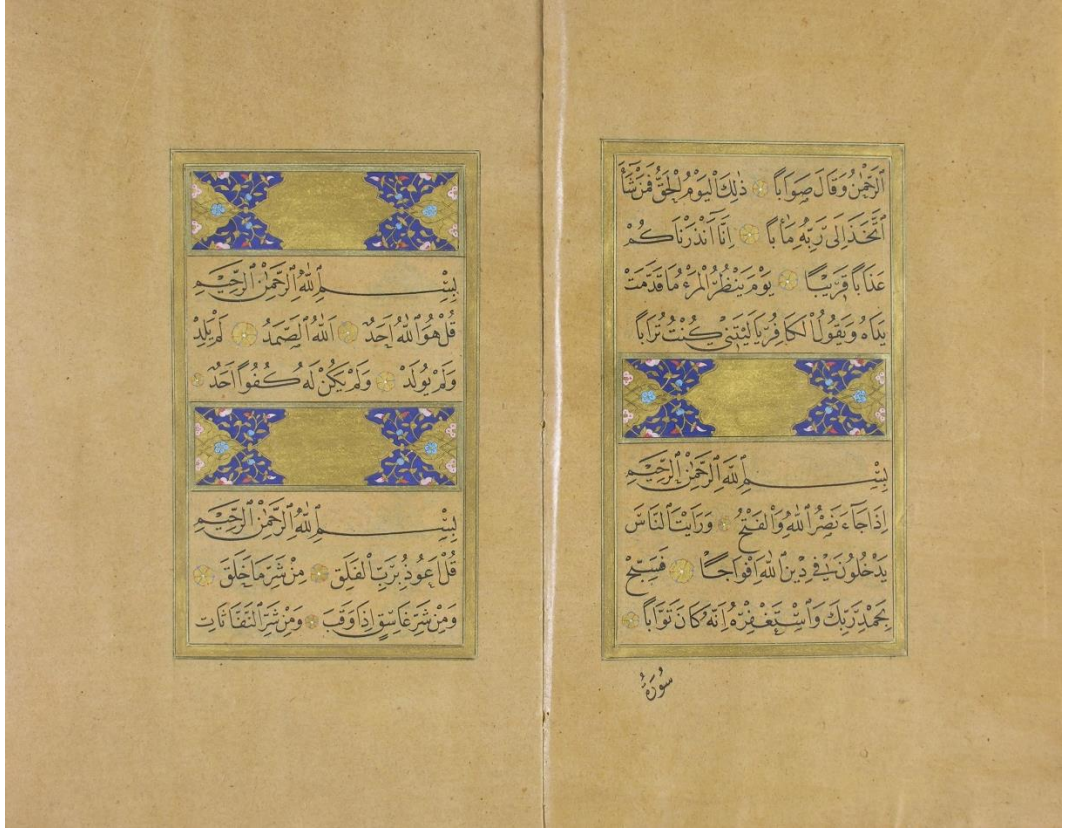 ٱلرَّحْمٰنُ وَقَالَ صَوَاباً ذٰلِكَ ٱلْيَوْمُ ٱلْحَقُّ فَمَنْ شَٓاءَ
ٱتَّخَذَ اِلٰى رَبِّهٖ مَاٰباً اِنَّٓا اَنْذَرْنَاكُمْ
عَذَاباً قَرٖيباً يَوْمَ يَنْظُرُ ٱلْمَرْءُ مَا قَدَّمَتْ
يَدَاهُ وَيَقُولُ ٱلْكَافِرُ يَا لَيْتَنٖي كُنْتُ تُرَاباً
بِسْمِ ٱللّٰهِ ٱلرَّحْمٰنِ ٱلرَّحٖيمِ
اِذَا جَٓاءَ نَصْرُ ٱللّٰهِ وَٱلْفَتْحُ وَرَاَيْتَ ٱلنَّاسَ
يَدْخُلُونَ فٖي دٖينِ ٱللّٰهِ اَفْوَاجاً فَسَبِّحْ
بِحَمْدِ رَبِّكَ وَٱسْتَغْفِرْهُ اِنَّهُ كَانَ تَوَّاباً
سُورَةُ
بِسْمِ ٱللّٰهِ ٱلرَّحْمٰنِ ٱلرَّحٖيمِ
قُلْ هُوَ ٱللّٰهُ اَحَدٌ اَللّٰهُ ٱلصَّمَدُ لَمْ يَلِدْ
وَلَمْ يُولَدْ وَلَمْ يَكُنْ لَهُ كُفُواً اَحَدٌ
بِسْمِ ٱللّٰهِ ٱلرَّحْمٰنِ ٱلرَّحٖيمِ
قُلْ اَعُوذُ بِرَبِّ ٱلْفَلَقِ مِنْ شَرِّ مَا خَلَقَ
وَمِنْ شَرِّ غَاسِقٍ اِذَا وَقَبَ وَمِنْ شَرِّ ٱلنَّفَّاثَاتِ